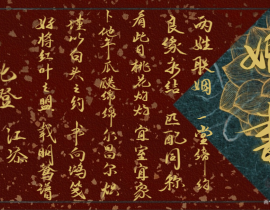 两姓联姻 一堂缔约
良缘永结 匹配同称
看此日桃花灼灼 宜室宜家
卜他年瓜瓞绵绵 尔昌尔炽
谨以白头之约 书向鸿笺
好将红叶之盟 载明鸳谱
江添